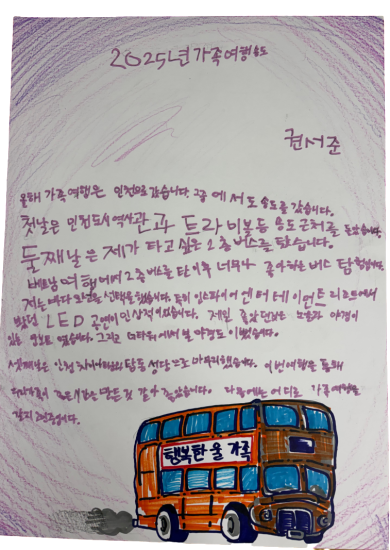 2025년 가족여행 송도
권서준
올해 가족여행은 인천으로 갔습니다. 그중에서도 송도를 갔습니다.
첫날은 인천도시역사관과 트라이보울 등 송도 근처를 돌았습니다.
둘째날은 제가 타고 싶은 2층 버스를 탔습니다.
베트남 여행에서 2층버스를 탄 이후 너무나 좋아하는 버스 탐험입니다.
저는 바다 노선을 선택을 했습니다. 특히 인스파이어 엔터테이먼트 리조트에서
보았던 LED 공연이 인상적이었습니다. 제일 좋았던 노을과 야경이
있는 습니다. 그리고 G타워에서 본 야경도 이뻤습니다.
셋째날은 인천 차이나타운 만두 식당으로 마무리했습니다. 이번여행은 통해
것 같아 좋았습니다. 다음에는 어디로 가족여행을
갈지 습니다.
행복한 울 가족